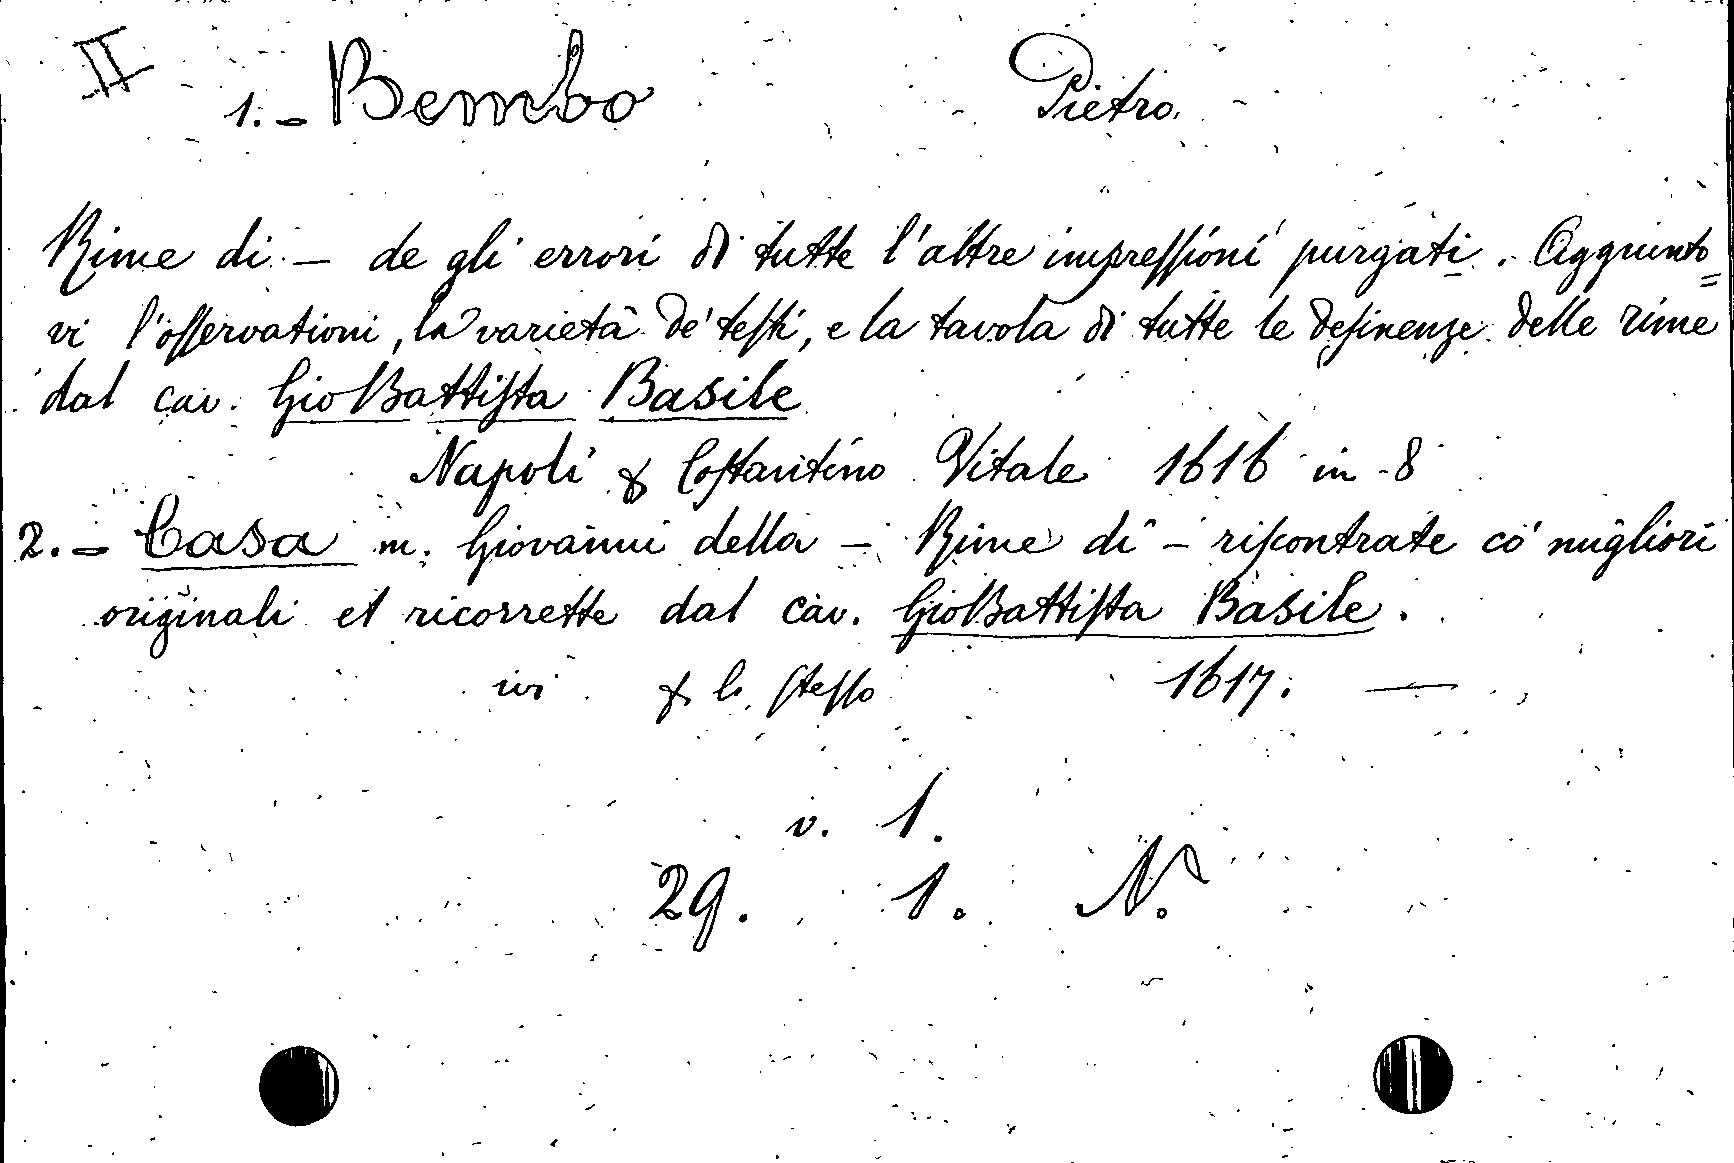 II 1. - Bembo Pietro.
Rime di - de gli errori di tutte l'altre impressioni purgati. Aggiunto=
vi l'osservationi, la varietà de' testi, e la tavola di tutte le desinenze delle rime
dal cav. GioBattista Basile
Napoli & Costantino Vitale 1616 in-8
2. - Casa m. Giovanni della - Rime di - riscontrate có migliori
originali et ricorrette dal cav. GioBattista Basile.
ivi & lo stesso 1617. —
v. 1.
29. 1. N.